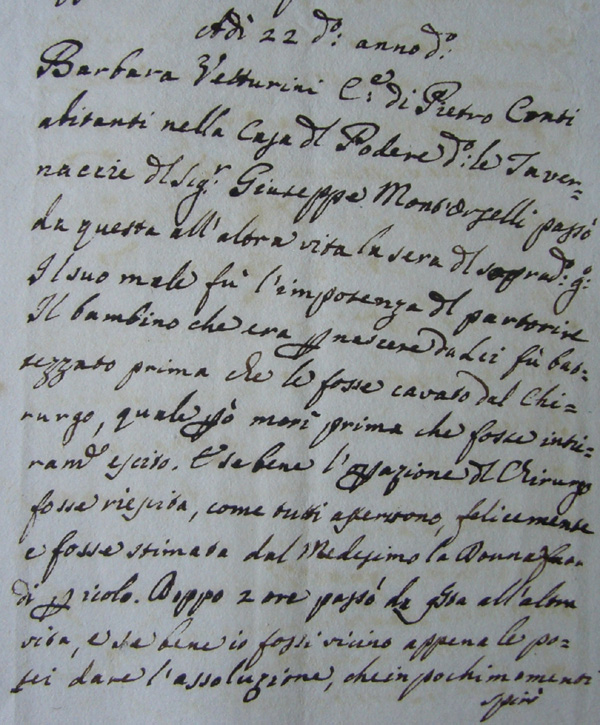 Adì 22 d.º anno d.º
Barbara Vetturini C.e di Pietro Conti
abitanti nella Casa dl Podere d.º le Taver=
naccie dl Sig.r Giuseppe passò
da questa all'altra vita la sera dl soprad.º g.º
Il suo male fù l'impotenza dl partorire
Il bambino che era p nascere da Lei fù bat=
tezzato prima che le fosse cavato dal Chi=
rurgo, quale pò morì prima che fosse intie=
ram.e escito. E se bene l'opazione dl Chirurgo
fosse riescita, come tutti asersono, felicemente
e fosse stimata dal Medesimo la Donna fuor
di picolo. Doppo 2 ore passò da qsta all'altra
vita, e se bene io fossi vicino appena le po=
tei dare l'assoluzione, che in pochi momenti
spirò